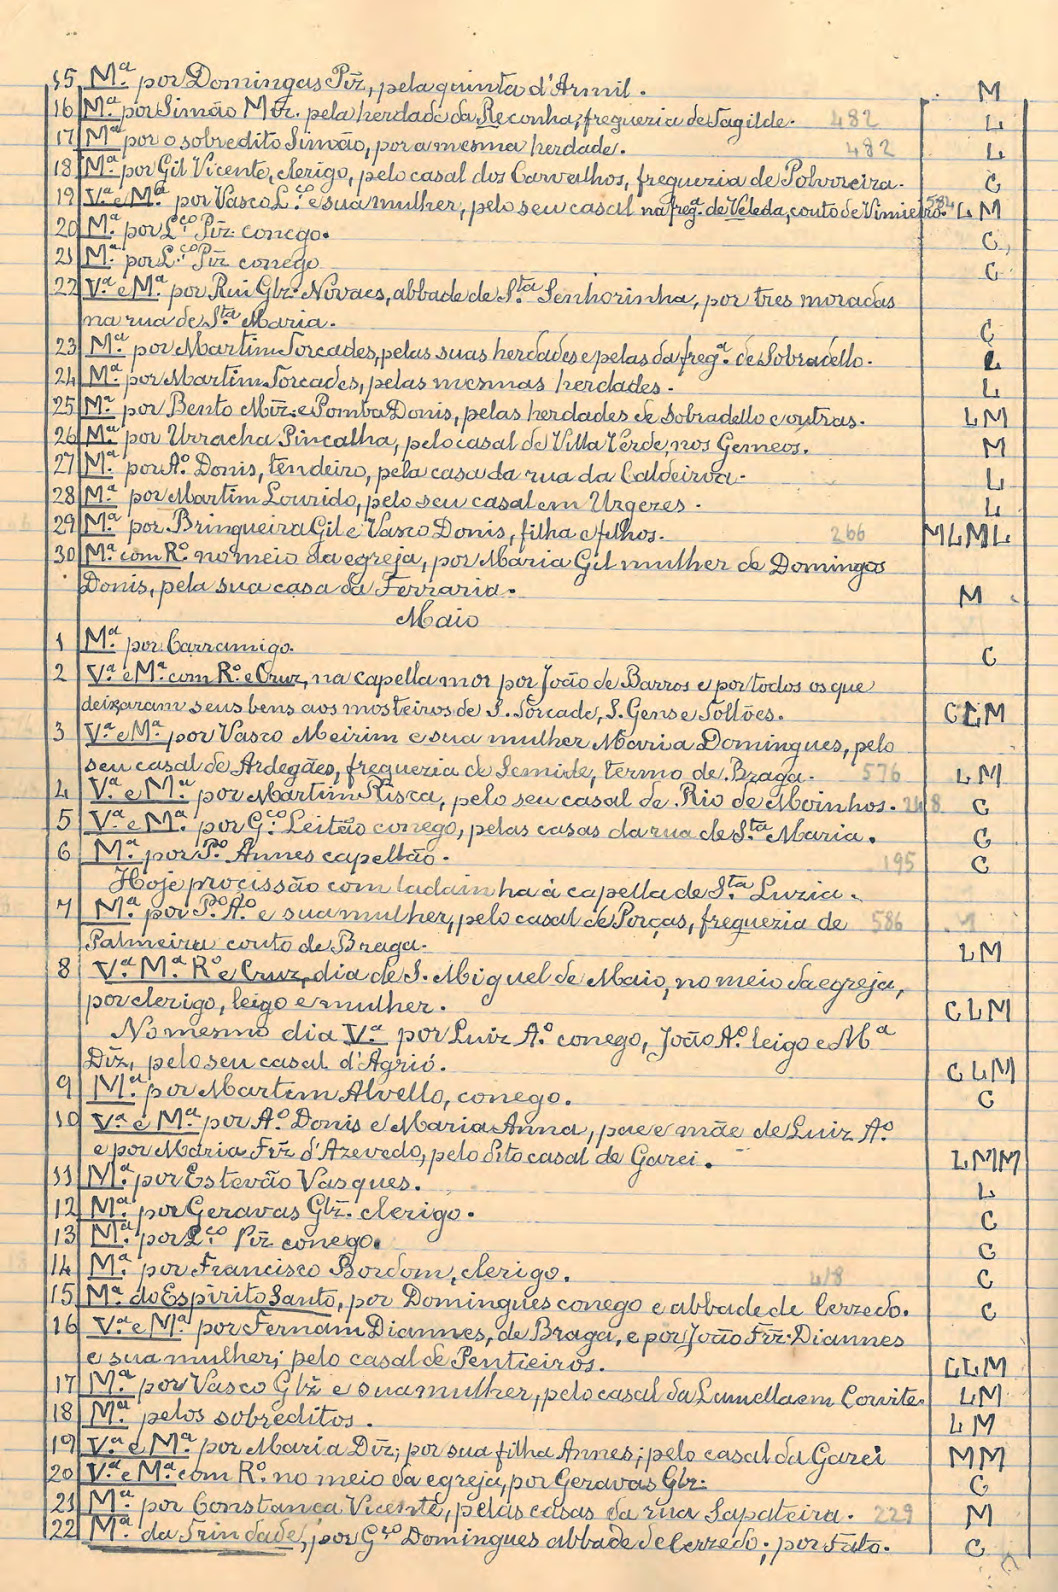 15 Mª. por Domingas Piz, pela quinta d'Armil. M
16 Mª. por Simão Miz. pela herdade da Reconha, freguezia de Tagilde. 482 L
17 Mª por o sobredito Simão, por a mesma herdade. 482 L
18 Mª. por Gil Vicente, clerigo, pelo casal dos Carvalhos, freguezia de Polvoreira. C
19 Vª e Mª por Vasco L.ço e sua mulher, pelo seu casal na fregª. de Veleda, couto de Vimieiro. 584 L M
20 Mª. por L.ço Piz. conego. C
21 Mª. por L.ço Piz conego C
22 Vª e Mª. por Rui Glz. Novaes, abbade de S.ta Senhorinha, por tres moradas
na rua de S.ta Maria. C
23 Mª. por Martim Torcades, pelas suas herdades e pelas da fregª. de Sobradello. L
24 Mª. por Martim Torcades, pelas mesmas herdades. L
25 Mª. por Bento Miz. e Pomba Donis, pelas herdades de Sobradello e outras. L M
26 Mª. por Urracha Pincalha, pelo casal de Villa Verde, nos Gemeos. M
27 Mª. por Aº. Donis, tendeiro, pela casa da rua da Caldeiroa. L
28 Mª. por Martim Lourido, pelo seu casal em Urgezes. L
29 Mª. por Bringueira Gil e Vasco Donis, filha e filhos. 266 M L M L
30 Mª. com Rº. no meio da egreja, por Maria Gil mulher de Domingos
Donis, pela sua casa da Ferraria. M
Maio
1 Mª. por Carramigo. C
2 Vª e Mª. com Rº. e Cruz, na capella mor por João de Barros e por todos os que
deixaram seus bens aos mosteiros de S. Torcade, S. Gens e Tollões. C L M
3 Vª e Mª. por Vasco Meirim e sua mulher Maria Domingues, pelo
seu casal de Ardegães, freguezia de Semide, termo de Braga. 576 L M
4 Vª. e Mª. por Martim Risca, pelo seu casal de Rio de Moinhos. 248 C
5 Vª. e Mª. por G.ço Leitão conego, pelas casas da rua de S.ta Maria. C
6 Mª. por Pº. Annes capellão. 195 C
Hoje procissão com ladainha à capella de S.ta Luzia.
7 Mª. por Pº. Aº. e sua mulher, pelo casal de Porças, freguezia de 586
Palmeira couto de Braga. L M
8 Vª. Mª. Rº e Cruz, dia de S. Miguel de Maio, no meio da egreja,
por clerigo, leigo e mulher. C L M
No mesmo dia Vª. por Luiz Aº. conego, João Aº. leigo e Mª
Diz, pelo seu casal d'Agrió. C L M
9 Mª. por Martim Alvello, conego. C
10 Vª. e Mª. por Aº. Donis e Maria Anna, pae e mãe de Luiz Aº.
e por Maria Frz d'Azevedo, pelo dito casal de Garei. L M M
11 Mª. por Estevão Vasques. L
12 Mª. por Geravas Glz. clerigo. C
13 Mª. por L.ço Piz conego. C
14 Mª. por Francisco Bordom, clerigo. 418 C
15 Mª. do Espirito Santo, por Domingues conego e abbade de Cerzedo. C
16 Vª. e Mª. por Fernam Diannes, de Braga, e por João Frz. Diannes
e sua mulher, pelo casal de Pentieiros. C L M
17 Mª. por Vasco Glz e sua mulher, pelo casal da Lumella em Corvite. L M
18 Mª. pelos sobreditos. L M
19 Vª. e Mª. por Maria Diz, por sua filha Annes; pelo casal da Garei M M
20 Vª. e Mª. com Rº. no meio da egreja, por Geravas Glz. C
21 Mª. por Constança Vicente, pelas casas da rua Sapateira. 229 M
22 Mª. da Trindade, por G.ço Domingues abbade de Cerzedo. por Fato. C